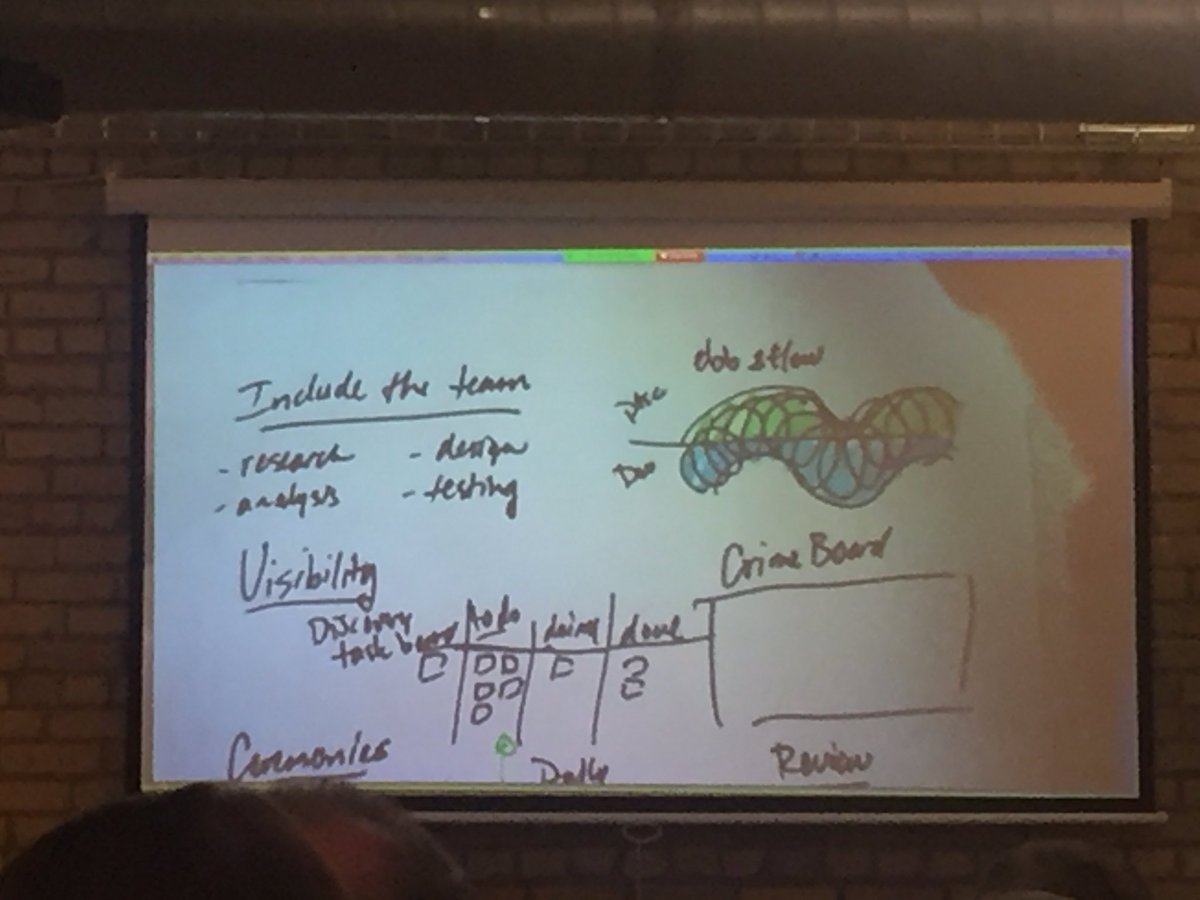 Include the team
- research - design
- analysis - testing
ebb & flow
Disc
Dev
Visibility
Discovery
task board
to do doing done
Crime Board
Ceremonies
Daily
Review